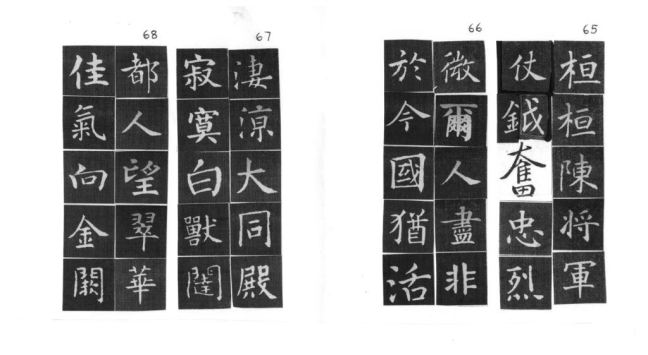 65
桓桓陳将軍
仗鉞奮忠烈
66
微爾人盡非
於今國猶活
67
淒涼大同殿
寂寞白獸闥
68
都人望翠華
佳氣向金闕